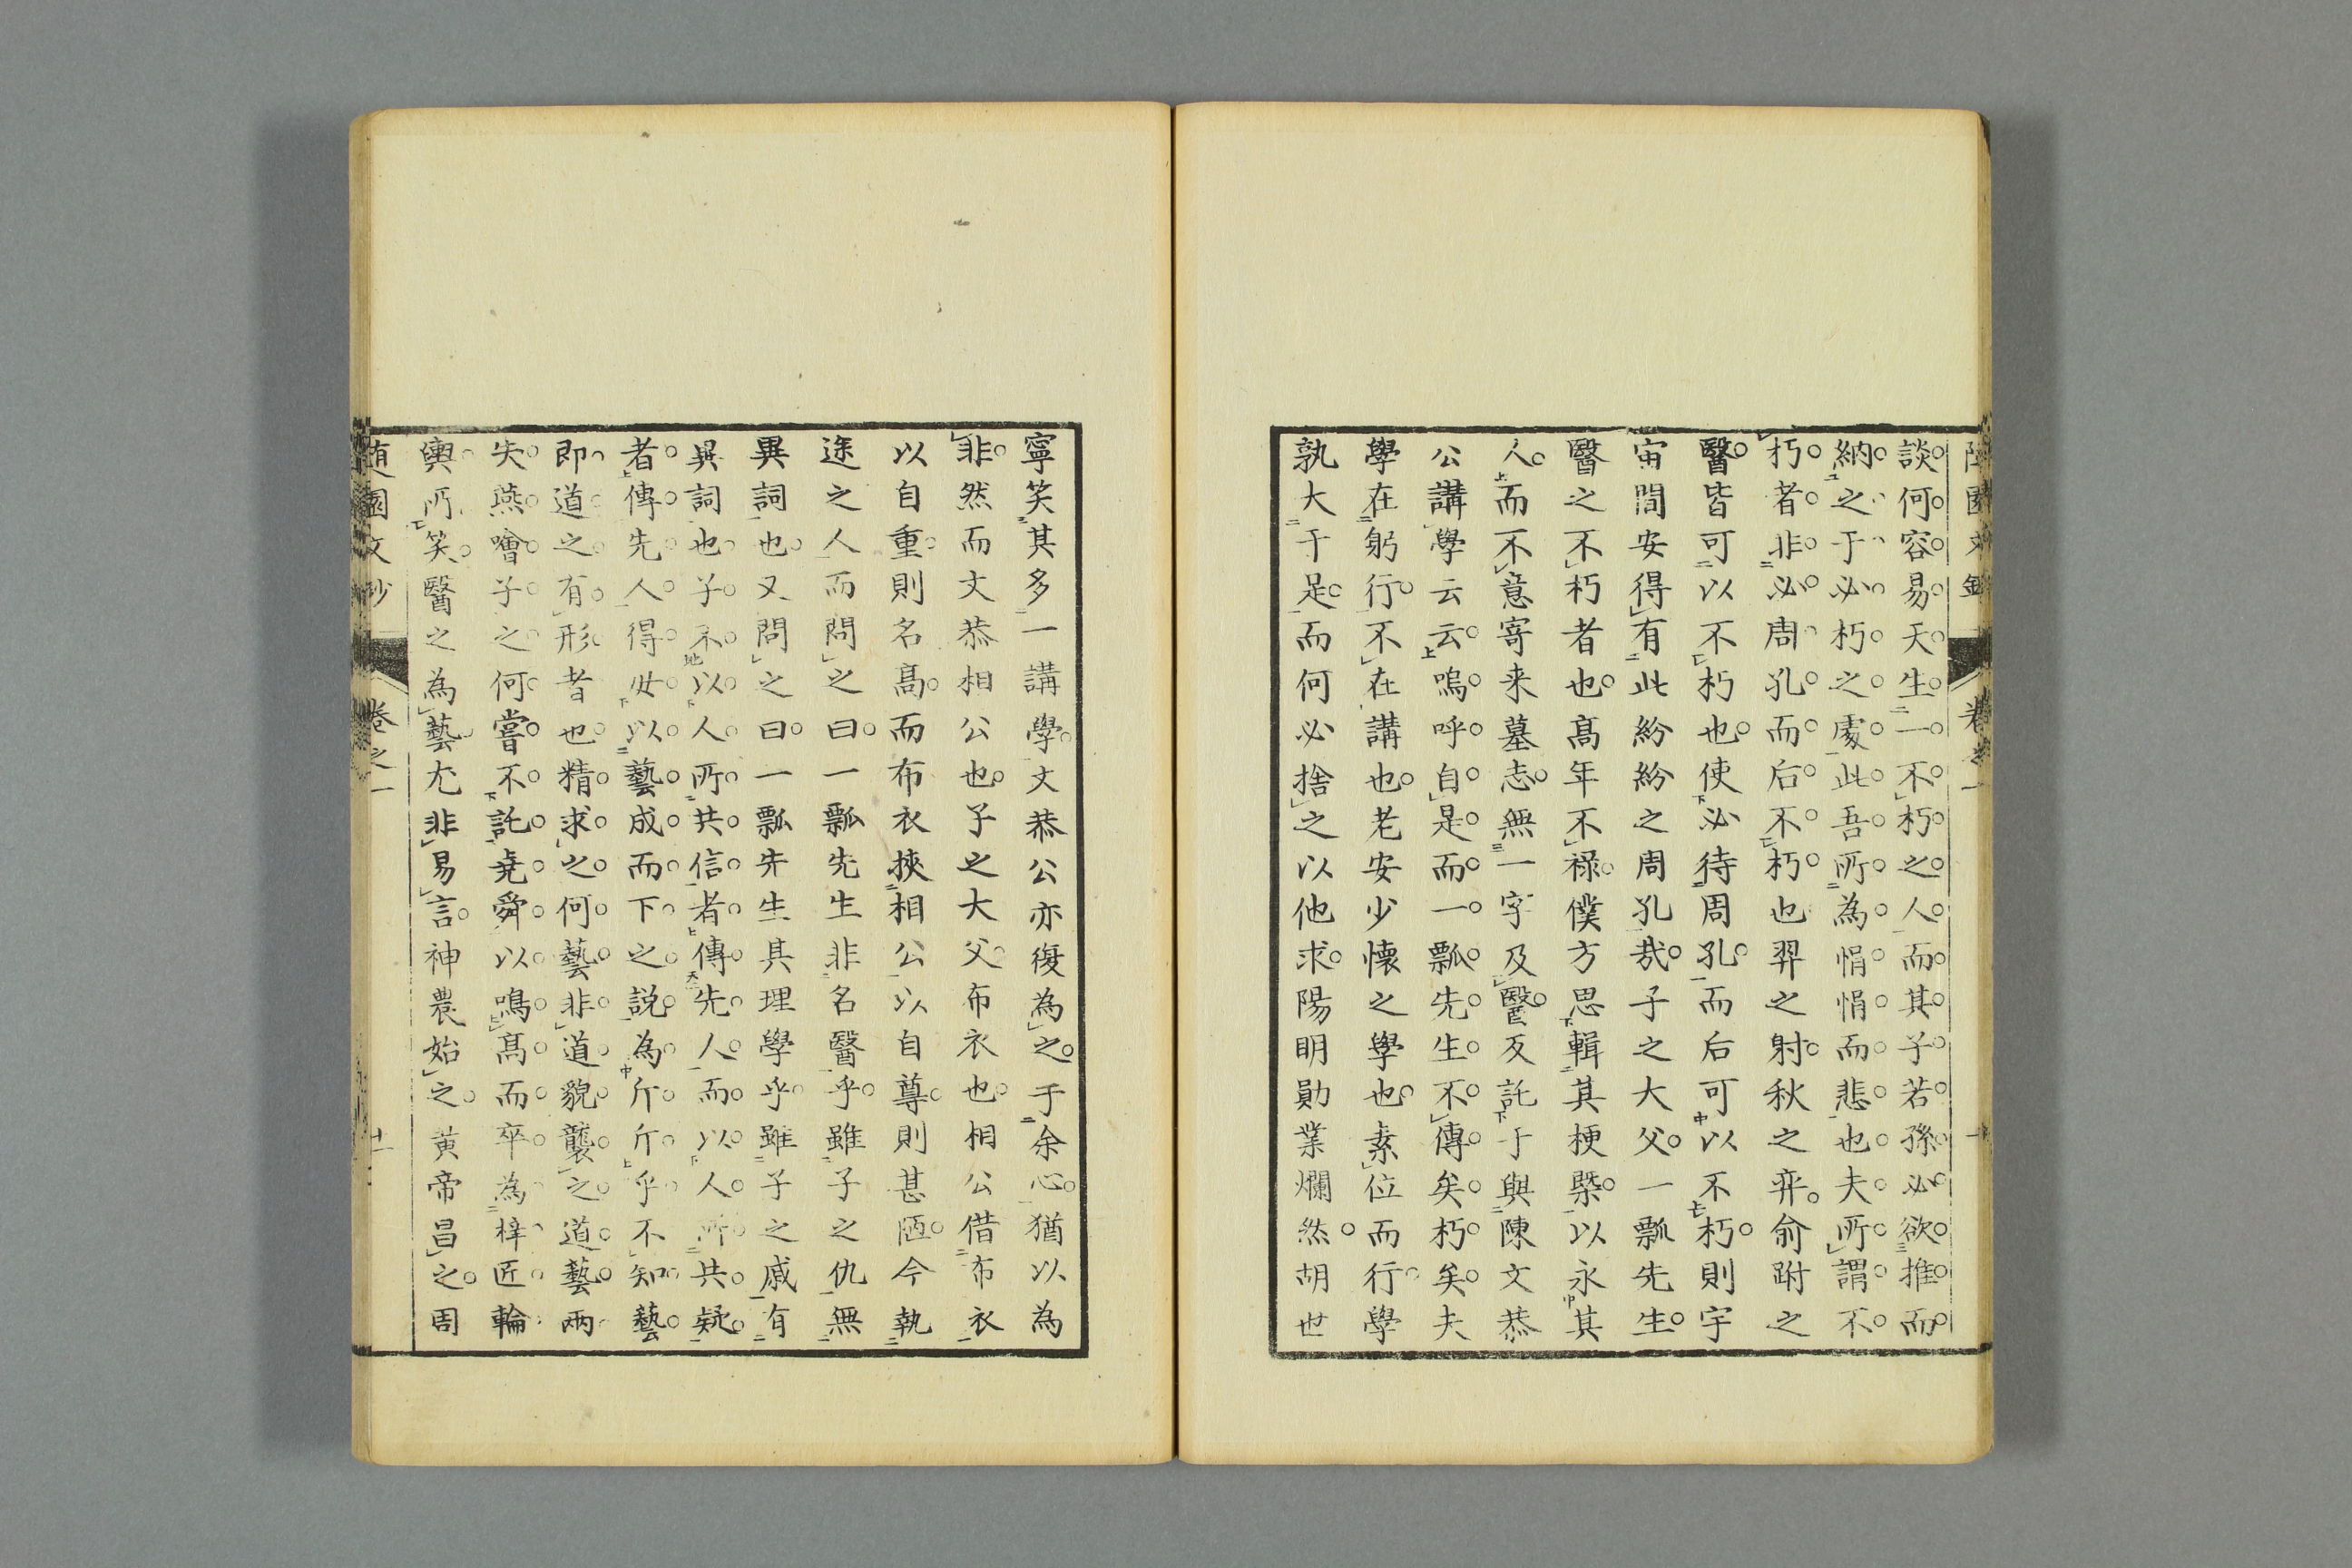 談何容易天生一不朽之人而其子若孫必欲推而
納之于必朽之處此吾所為悁悁而悲也夫所謂不
朽者非必周孔而后不朽也羿之射秋之弈俞跗之
醫皆可以不朽也使必待周孔而后可以不朽則宇
宙間安得有此紛紛之周孔哉子之大父一瓢先生
醫之不朽者也高年不祿僕方思輯其梗槩以永其
人而不意寄来墓志無一字及醫反託于與陳文恭
公講學云云嗚呼自是而一瓢先生不傳矣朽矣夫
學在躬行不在講也老安少懷之學也素位而行學
孰大于是而何必捨之以他求陽明勛業爛然胡世
寧笑其多一講學文恭公亦復為之于余心猶以為
非然而文恭相公也子之大父布衣也相公借布衣
以自重則名高而布衣挾相公以自尊則甚陋今執
途之人而問之曰一瓢先生非名醫乎雖子之仇無
異詞也又問之曰一瓢先生其理學乎雖子之戚有
異詞也子不以人所共信者傳先人而以人所共疑
者傳先人得毋以藝成而下之說為斤斤乎不知藝
即道之有形者也精求之何藝非道貌襲之道藝兩
失燕噲子之何嘗不託堯舜以鳴高而卒為梓匠輪
輿所笑醫之為藝尤非易言神農始之黃帝昌之周
隨園文鈔 卷之一 十一